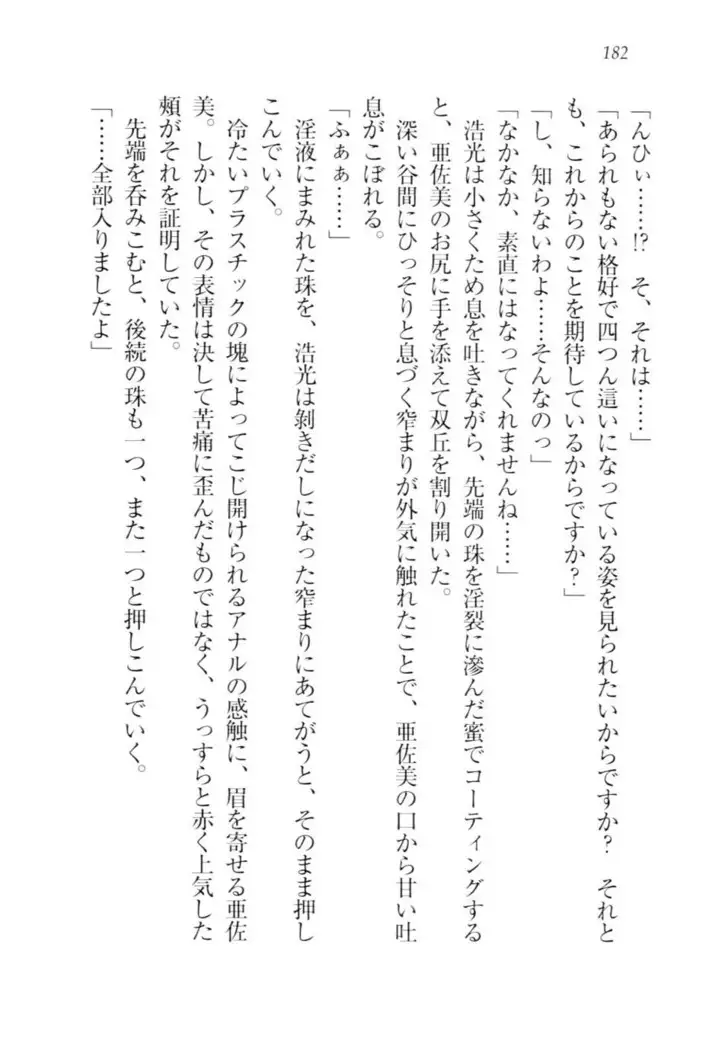 182
「んひぃ……!?　そ、それは……」
「あられもない格好で四つん這いになっている姿を見られたいからですか？　それと
も、これからのことを期待しているからですか？」
「し、知らないわよ……そんなのっ」
「なかなか、素直にはなってくれませんね……」
　浩光は小さくため息を吐きながら、先端の珠を淫裂に滲んだ蜜でコーティングする
と、亜佐美のお尻に手を添えて双丘を割り開いた。
　深い谷間にひっそりと息づく窄まりが外気に触れたことで、亜佐美の口から甘い吐
息がこぼれる。
「ふぁぁ……」
　淫液にまみれた珠を、浩光は剝きだしになった窄まりにあてがうと、そのまま押し
こんでいく。
　冷たいプラスチックの塊によってこじ開けられるアナルの感触に、眉を寄せる亜佐
美。しかし、その表情は決して苦痛に歪んだものではなく、うっすらと赤く上気した
頰がそれを証明していた。
　先端を呑みこむと、後続の珠も一つ、また一つと押しこんでいく。
「……全部入りましたよ」